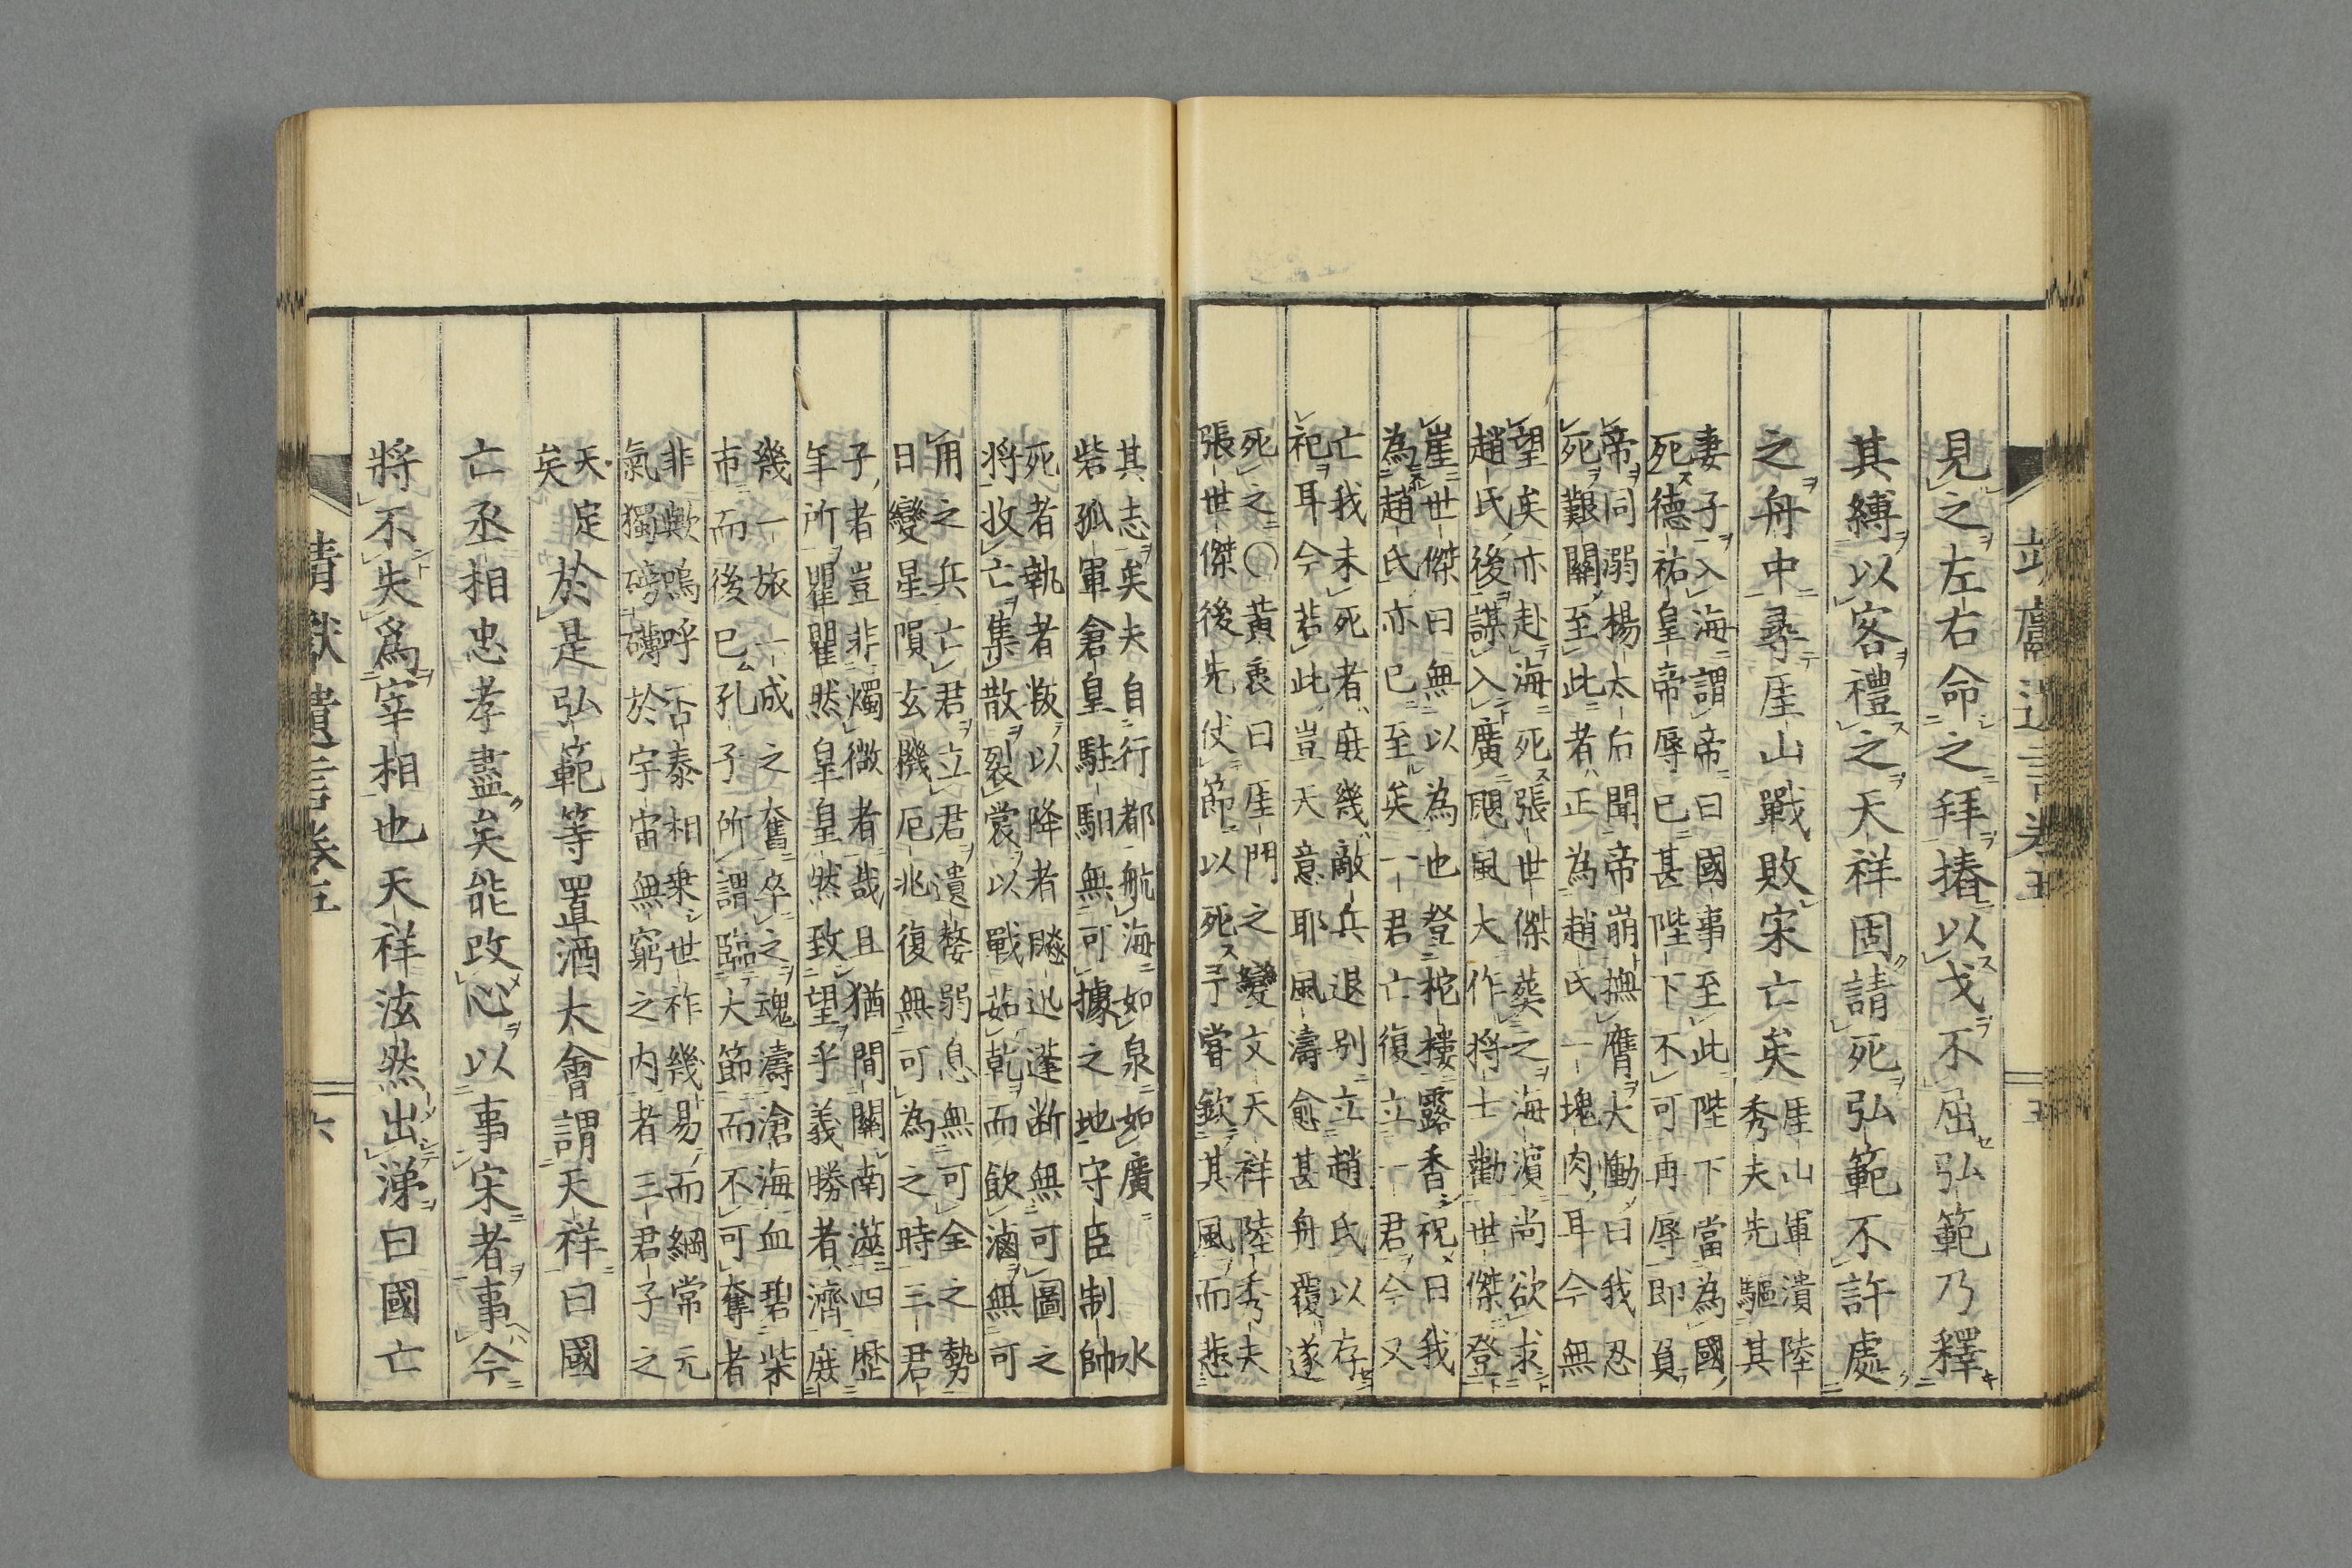 見之左右命之拜摏以戈不屈弘範乃釋
其縛以客禮之天祥固請死弘範不許處
之舟中尋厓山戰敗宋亡矣
厓山軍潰陸
秀夫先驅其
妻子入海謂帝曰國事至此陛下當為國
死德祐皇帝辱已甚陛下不可再辱即負
帝同溺楊太后聞帝崩撫膺大慟曰我忍
死艱關至此者正為趙氏一塊肉耳今無
望矣亦赴海死張世傑葬之海濵尚欲求
趙氏後謀入廣颶風大作將士勸世傑登
崖世傑曰無以為也登柁樓露香祝曰我
為趙氏亦已至矣一君亡復立一君今又
亡我未死者庻幾敵兵退別立趙氏以存
祀耳今若此豈天意耶風濤愈甚舟覆遂
死之〇黃袠曰厓門之變文天祥陸秀夫
張世傑後先仗節以死予嘗欽其風而悲
其志矣夫自行都航海如泉如廣水
砦孤軍倉皇駐馹無可據之地守臣制帥
死者執者叛以降者颷迅蓬断無可圖之
將收亡集散裂裳以戰茹乾而飲滷無可
用之兵亡君立君遺嫠弱息無可全之勢
日變星隕玄機厄兆復無可為之時三君
子者豈非燭微者哉且猶間關南澨四歴
年所瞿瞿然皇皇然致望乎義勝者濟庻
幾一旅一成之奮卒之魂濤滄海血碧柴
市而後已孔子所謂臨大節而不可奪者
非歟嗚呼否泰相乗世祚幾易而綱常元
氣獨磅礴於宇宙無窮之内者三君子之
天定
矣
於是弘範等置酒大會謂天祥曰國
亡丞相忠孝盡矣能改心以事宋者事今
將不失爲宰相也天祥泫然出涕曰國亡